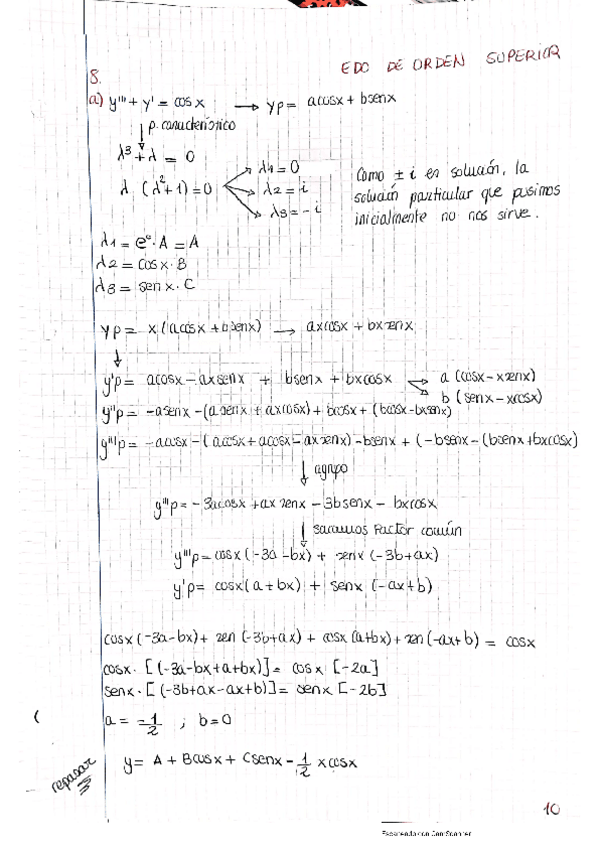 EDO DE ORDEN SUPERIOR
8.
a) y''' + y' = cos x → yp = acosx + bsenx
↓ p. característico
λ³ + λ = 0
λ (λ² + 1) = 0
λ1 = 0
λ2 = i
λ3 = -i
Como ± i es solución, la
solución particular que pusimos
inicialmente no nos sirve.
λ1 = e⁰ · A = A
λ2 = cos x · B
λ3 = sen x · C
yp = x (acosx + bsenx) → axcosx + bxsenx
↓
y'p = acosx - axsenx + bsenx + bxcosx
a (cosx - xsenx)
b (senx - xcosx)
y''p = -asenx - (asenx + axcosx) + bcosx + (bcosx - bxsenx)
y'''p = -acosx - (acosx + acosx - axsenx) - bsenx + (-bsenx - (bsenx + bxcosx)
↓ agrupo
y'''p = -3acosx + axsenx - 3bsenx - bxcosx
↓ sacamos Factor común
y'''p = cosx (-3a - bx) + senx (-3b + ax)
y'p = cosx (a + bx) + senx (-ax + b)
cosx (-3a - bx) + sen (-3b + ax) + cosx (a + bx) + sen (-ax + b) = cosx
cosx · [(-3a - bx + a + bx)] = cosx [-2a]
senx · [(-3b + ax - ax + b)] = senx [-2b]
a = -1/2 ; b = 0
y = A + Bcosx + Csenx - 1/2 xcosx
repasar
10
Escaneado con CamScanner